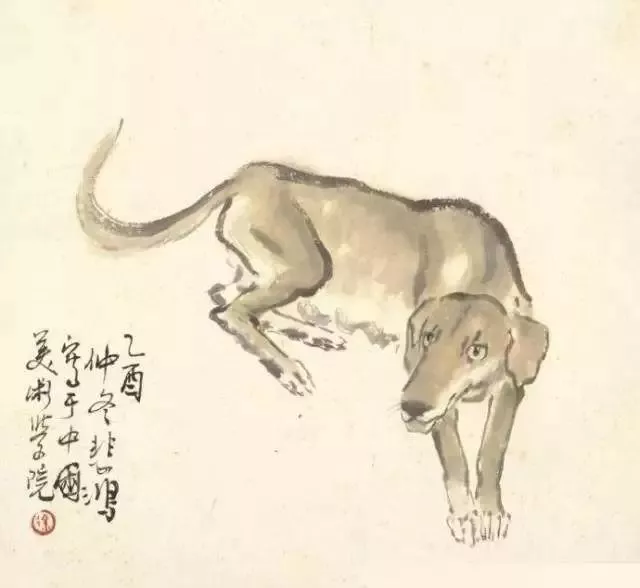 乙酉
仲冬悲鸿
写于中國
美術学院
徐